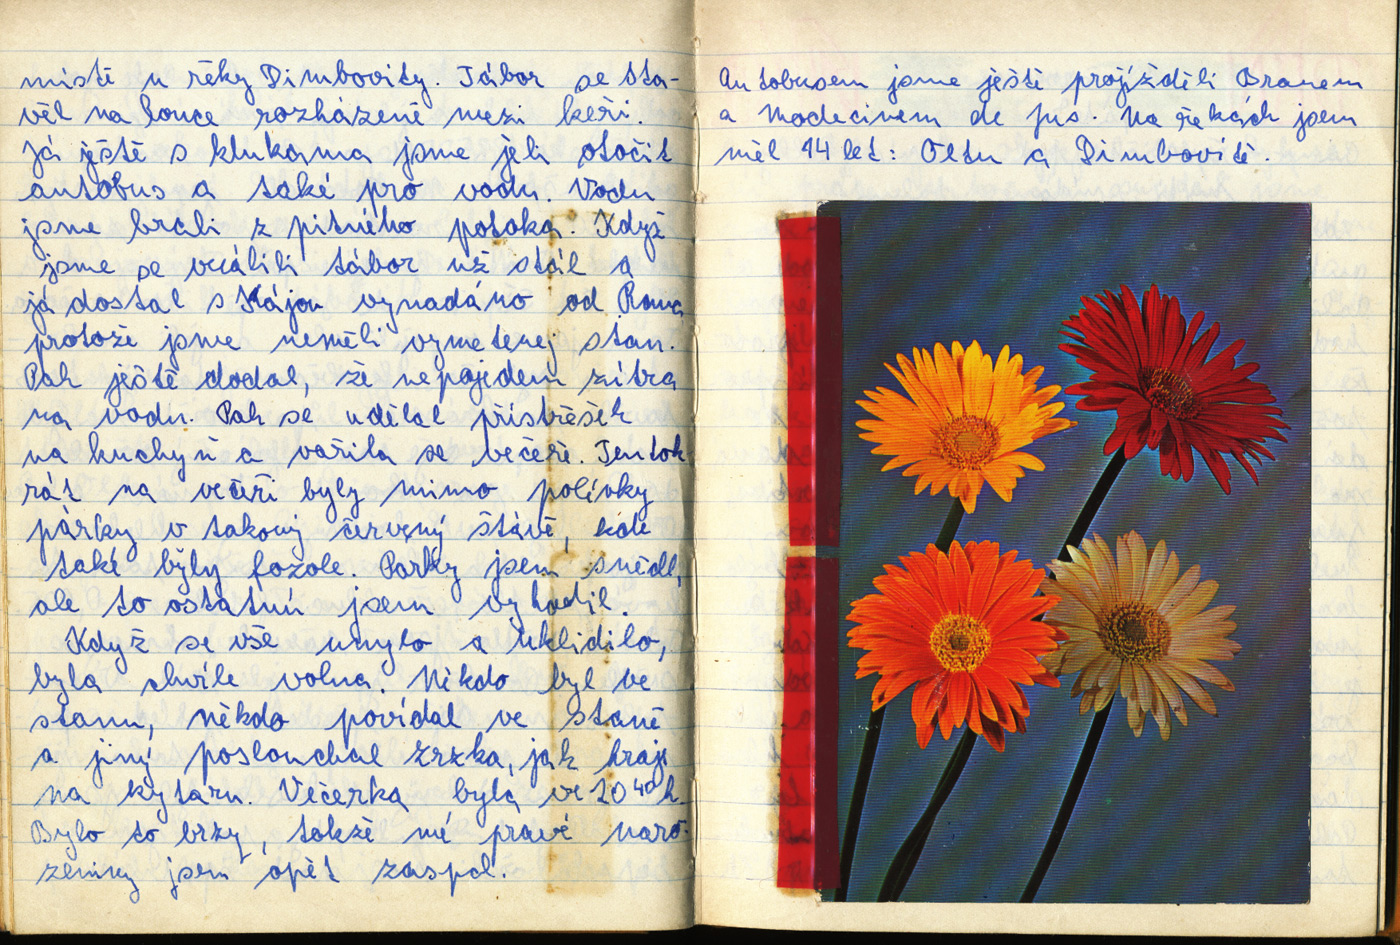 místě u řéky Dimbovity. Tábor se sta-
věl na louce rozházeně mezi keři.
Já ještě s klukama jsme jeli otočit
autobus a také pro vodu. Vodu
jsme brali z pitného potoka. Když
jsme se vrátili tábor už stál a
já dostal s Kájou vynadáno od Roma
protože jsme neměli vymetenej stan.
Pak ještě dodal, že nepojedem zítra
na vodu. Pak se udělal přístřěšek
na kuchyň a vařila se večeře. Tentok
rát na večeři byly mimo polívky
párky v takový červený štávě, kde
také byly fazole. Parky jsem snědl,
ale to ostatní jsem vyhodil.
Když se vše umylo a uklidilo,
byla chvíle volna. Někdo byl ve
stanu, někdo povídal ve staně
a jiný poslouchal Zrzka, jak hraje
na kytaru. Večerka byla ve 20 40 h.
Bylo to brzy, takže mé pravé naro-
zeniny jsem opět zaspal.
Autobusem jsme ještě projížděli Branem
a Modecinem de jus. Na řekách jsem
měl 14 let: Oltu a Dimbovitě.